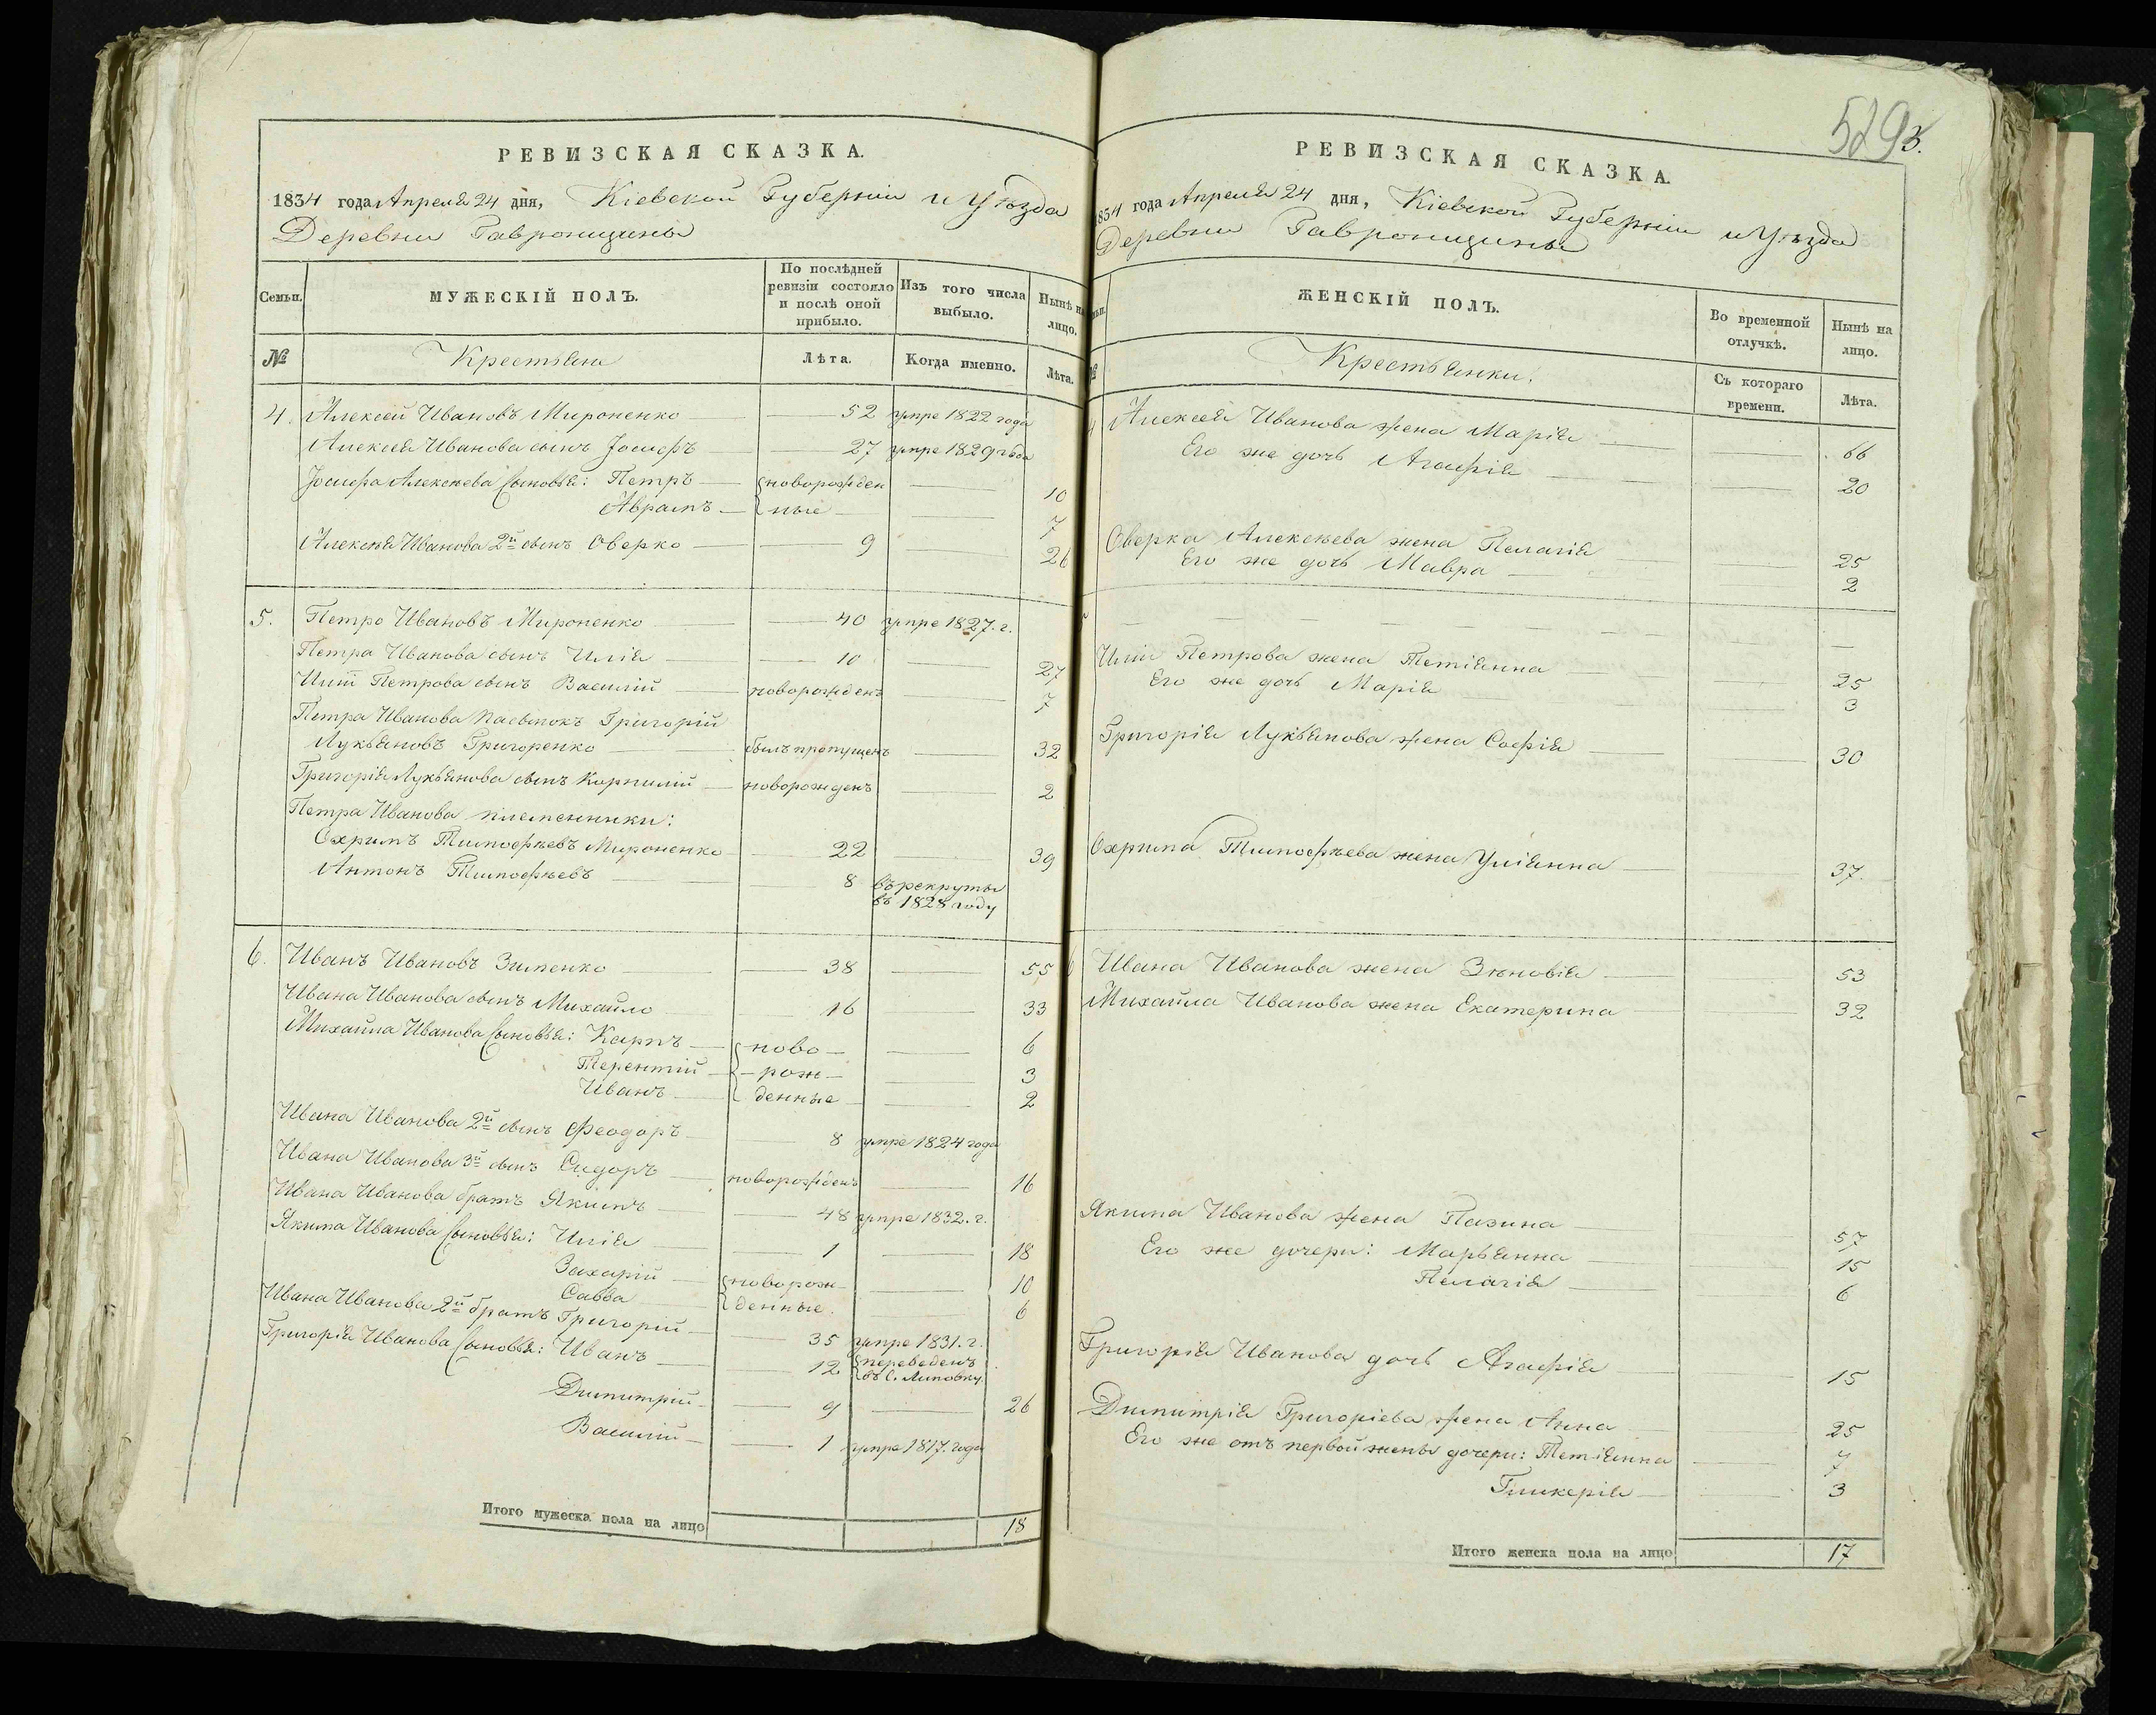 РЕВИЗСКАЯ СКАЗКА.
1834 года Апреля 24 дня, Кіевской Губерніи и Уѣзда
Деревни Гавронщины
Семьи. МУЖЕСКІЙ ПОЛЪ. По послѣдней ревизіи состояло и послѣ оной прибыло. Изъ того числа выбыло. Нынѣ на лицо.
№ Крестьяне Лѣта. Когда именно. Лѣта.
4. Алексей Ивановъ Мироненко 52 умре 1822 года
Алексея Иванова сынъ Іосифъ 27 умре 1829 года
Іосифа Алексѣева сыновья: Петръ новорожден 10
Аврамъ ные 7
Алексѣя Иванова 2й сынъ Оверко 9 26
5. Петро Ивановъ Мироненко 40 умре 1827. г.
Петра Иванова сынъ Илія 10 27
Иліи Петрова сынъ Василій новорожденъ 7
Петра Иванова пасынокъ Григорій
Лукьяновъ Григоренко былъ пропущенъ 32
Григорія Лукьянова сынъ Корнилій новорожденъ 2
Петра Иванова племенники:
Охримъ Тимофѣевъ Мироненко 22 39
Антонъ Тимофѣевъ 8 въ рекруты
въ 1828 году
6. Иванъ Ивановъ Зименко 38 55
Ивана Иванова сынъ Михайло 16 33
Михайла Иванова сыновья: Карпъ ново- 6
Терентій - рож - 3
Иванъ денные 2
Ивана Иванова 2й сынъ Феодоръ 8 умре 1824 года
Ивана Иванова 3й сынъ Сидоръ новорожденъ 16
Ивана Иванова братъ Якимъ 48 умре 1832. г.
Якима Иванова сыновья: Илія 1 18
Захарій новорож- 10
Савва денные. 6
Ивана Иванова 2й братъ Григорій 35 умре 1831. г.
Григорія Иванова сыновья: Иванъ 12 переведенъ
въ с. Липовку
Димитрій 9 26
Василій 1 умре 1817. года
Итого мужеска пола на лицо 18
529 3.
РЕВИЗСКАЯ СКАЗКА.
1834 года Апреля 24 дня, Кіевской Губерніи и Уѣзда
Деревни Гавронщины
ЖЕНСКІЙ ПОЛЪ. Во временной отлучкѣ. Нынѣ на лицо.
№ Крестьянки. Съ котораго времени. Лѣта.
4 Алексея Иванова жена Марія 66
Его же дочь Агафія 20
Оверка Алексѣева жена Пелагія 25
Его же дочь Мавра 2
Иліи Петрова жена Тетіянна 25
Его же дочь Марія 3
Григорія Лукьянова жена Софія 30
Охрима Тимофѣева жена Уліянна 37.
6 Ивана Иванова жена Зѣновія 53
Михайла Иванова жена Екатерина 32
Якима Иванова жена Пазина 57
Его же дочери: Марьянна 15
Пелагія 6
Григорія Иванова дочь Агафія 15
Димитрія Григоріева жена Анна 25
Его же отъ первой жены дочери: Тетіянна 7
Гликерія 3
Итого женска пола на лицо 17